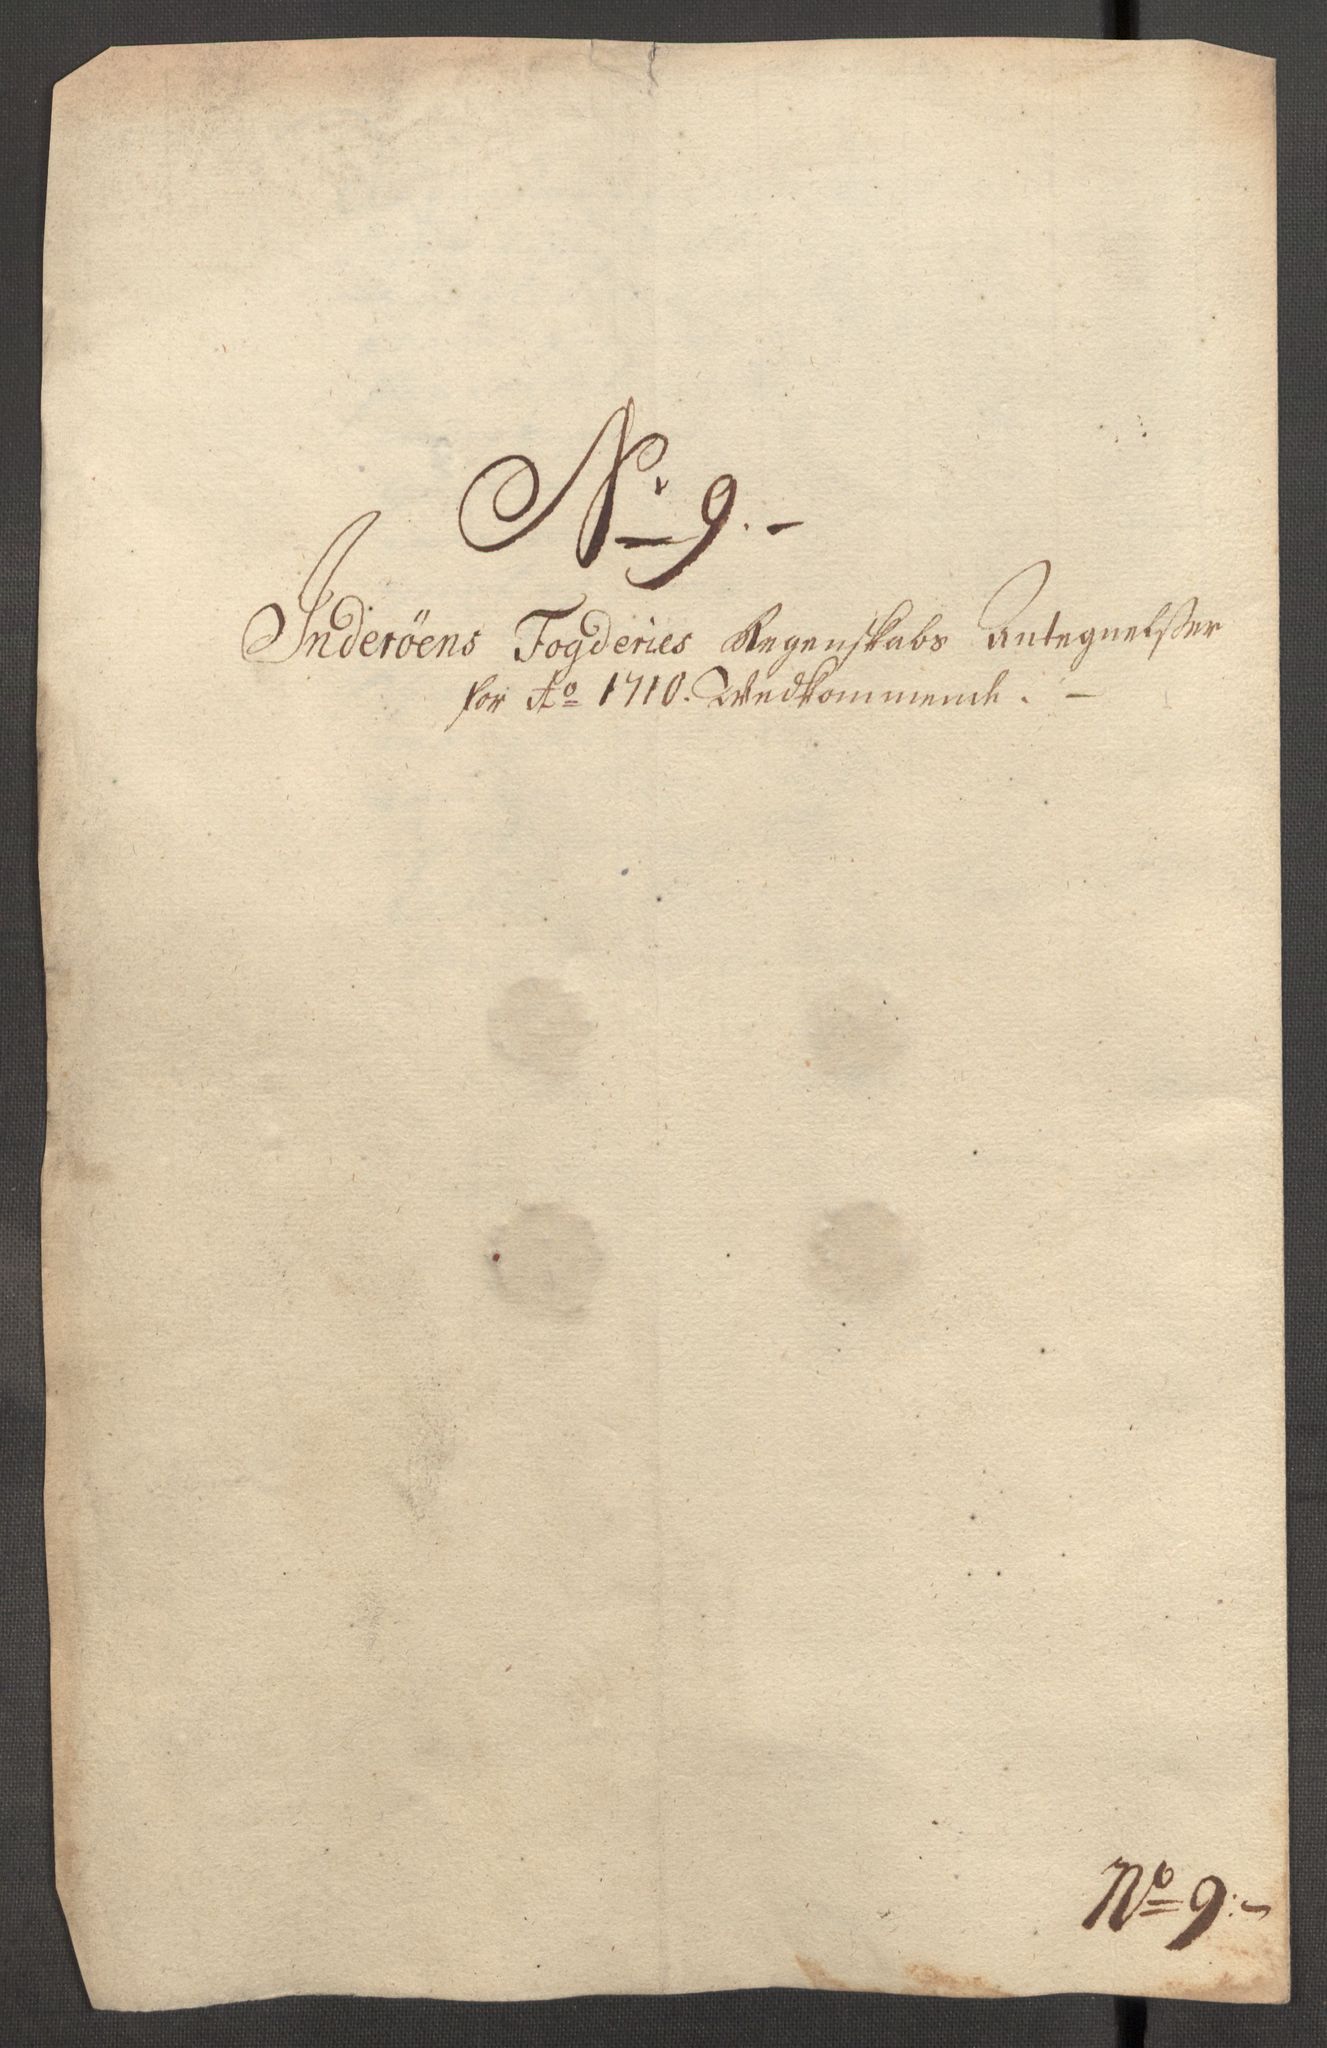 No 9.-
Inderöens Fogderies Regenskabs Antegnelsser
for Ao 1710. Wedkommende. -
No 9:-